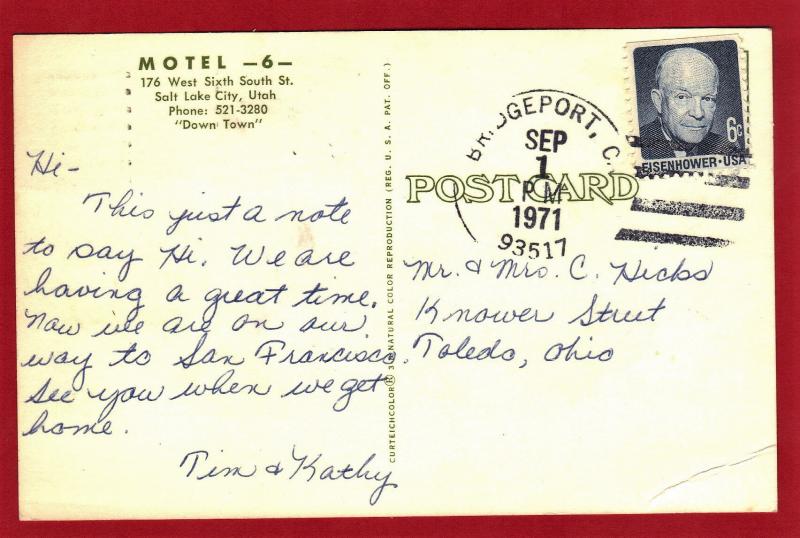 MOTEL —6—
176 West Sixth South St.
Salt Lake City, Utah
Phone: 521-3280
"Down Town"
Hi-
This just a note
to say Hi. We are
having a great time.
Now we are on our
way to San Francisco.
See you when we get
home.
Tim & Kathy
CURTEICHCOLOR® 3-D NATURAL COLOR REPRODUCTION (REG. U. S. A. PAT. OFF.)
POST CARD
BRIDGEPORT, C
SEP
1
PM
1971
93517
6c
EISENHOWER·USA
Mr. & Mrs. C. Hicks
Knower Street
Toledo, Ohio